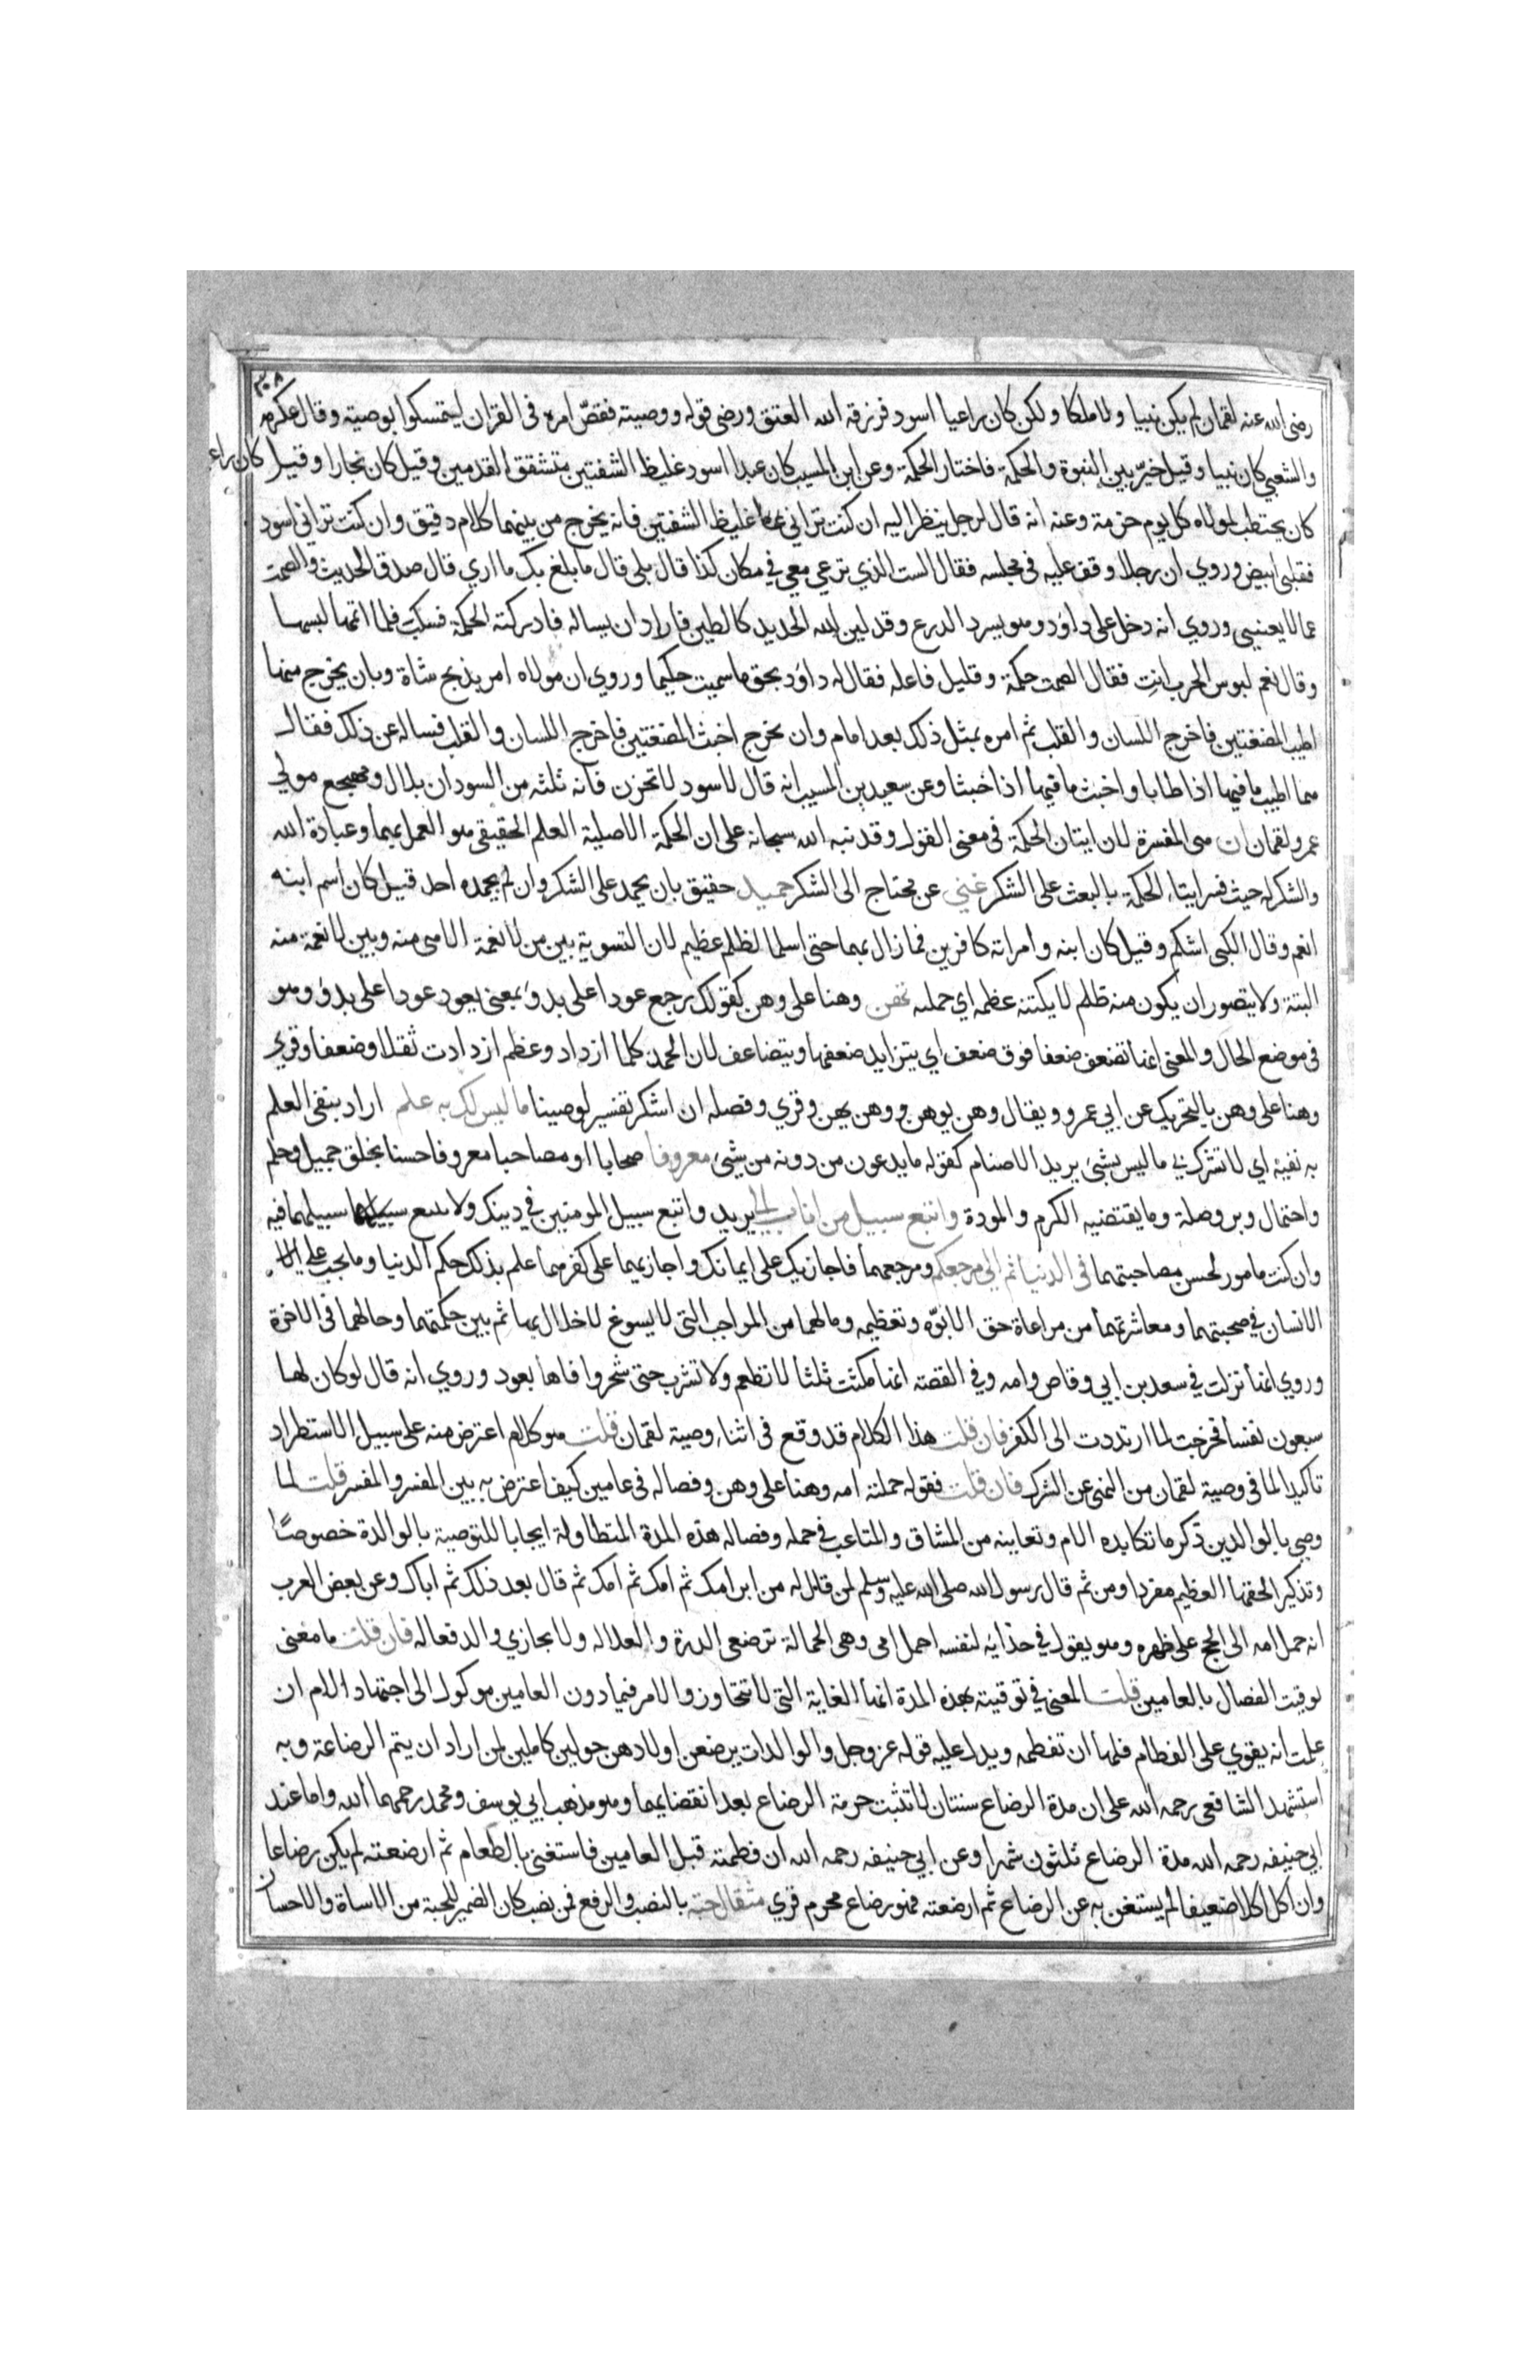 ٣٠٨
رضى الله عنه لقمان لم يكن نبيا ولا ملكا ولكن كان راعيا اسود فرزقه الله العتق ورضى قوله ووصيته فقصّ امره فى القران ليتمسكوا بوصيته وقال عكرمه
والشعبي كان نبيا وقيل خيّر بين النبوة والحكمة فاختار الحكمة وعن ابن المسيب كان عبدا اسود غليظ الشفتين متشقق القدمين وقيل كان نجارا وقيل كان راعيا
كان يحتطب لمولاه كل يوم حزمة وعنه انه قال لرجل ينظر اليه ان كنت تراني غليظ الشفتين فانه يخرج من بينهما كلام دقيق وان كنت تراني اسود
فقلبي ابيض وروي ان رجلا وقف عليه فى مجلسه فقال الست الذي ترعي معي في مكان كذا قال بلى قال ما بلغ بك ما اري قال صدق الحديث والصمت
عما لا يعنيني وروي انه دخل على داوٗد وهو يسرد الدرع وقد لين الله الحديد كالطين فاراد ان يساله فادركته الحكمة فسكت فلما اتمها لبسها
وقال نعم لبوس الحرب انت فقال الصمت حكمة وقليل فاعله فقال له داوٗد بحق ما سميت حكيما وروي ان مولاه امر بذبح شاة وبان يخرج منها
اطيب المضغتين فاخرج اللسان والقلب ثم امره بمثل ذلك بعد امام وان يخرج اخبث المضغتين فاخرج اللسان والقلب فساله عن ذلك فقال
هما اطيب ما فيها اذا طابا واخبث ما فيها اذا خبثا وعن سعيد بن المسيب انه قال لاسود لا تحزن فانه ثلثه من السودان بلال ومهجع مولي
عمر ولقمان ان هى المفسرة لان ايتان الحكمة فى معنى القول وقد نبه الله سبحانه على ان الحكمة الاصلية العلم الحقيقى هو العمل بهما وعبادة الله
والشكر له حيث فسر ايتاء الحكمة بالبعث على الشكر غني عن محتاج الى الشكر حميد حقيق بان يحمد على الشكر وان لم يحمده احد قيل كان اسم ابنه
انعم وقال الكبى اشكم وقيل كان ابنه وامراته كافرين فما زال بهما حتى اسلما لظلم عظيم لان التسوية بين من لا نعمة الا هى منه وبين لا نعمة منه
البتة ولا يتصور ان يكون منه ظلم لا يكتنه عظمه اي حملته وهنا على وهن كقولك رجع عودا على بدو بمعنى يعود عودا على بدو وهو
فى موضع الحال والمعنى انها تضعف ضعفا فوق ضعف اي يتزايد ضعفها ويتضاعف لان الحمد كلما ازداد وعظم ازدادت ثقلا وضعفا وقري
وهنا على وهن بالتحريك عن ابي عمرو ويقال وهن يوهن ووهن يهن وقري وفصله ان اشكر تفسير لوصينا ما ليس لك به علم اراد بنفى العلم
به نفيه اي لا تشرك بي ما ليس بشئ يريد الاصنام كقوله ما يدعون من دونه من شيئ معروفا صحابا او مصاحبا معروفا حسنا بخلق جميل وحلم
واحتمال وبر وصلة وما يقتضيه الكرم والمودة واتبع سبيل من اناب الي يريد واتبع سبيل المومنين في دينك ولا تتبع سبيلهما فيه
وان كنت مامور لحسن مصاحبتهما فى الدنيا ثم الي مرجعكم ومرجعهما فاجازيك على ايمانك واجازيهما على كفرهما علم بذلك حكم الدنيا وما يجب على
الانسان في صحبتهما ومعاشرتهما من مراعاة حق الابوّه وتعظيمه وما لهما من المواجب التى لا يسوغ لاخلال بها ثم بين حكمتهما وحالهما فى الاخرة
وروي انها نزلت في سعد بن ابي وقاص وامه وفي القصة انها مكثت ثلثا لا تطعم ولا تشرب حتى شجروا فاها بعود وروي انه قال لو كان لها
سبعون نفسا فخرجت لما ارتددت الى الكفر فان قلت هذا الكلام قد وقع فى اثناء وصية لقمان قلت هو كلام اعترض منه على سبيل الاستطراد
تاكيدا لما فى وصية لقمان من النهى عن الشرك فان قلت فقوله حملته امه وهنا على وهن وفصاله فى عامين كيف اعترض به بين المفسر والمفسر قلت لما
وصى بالوالدين ذكر ما تكابده الام وتعاينه من المشاق والمتاعب في حمله وفصاله هذه المدة المتطاولة ايجابا للتوصية بالوالدة خصوصًا
وتذكير الحقها العظيم مفردا ومن ثم قال رسول الله صلى الله عليه وسلم لمن قال له من ابر امك ثم امك ثم امك ثم قال بعد ذلك ثم اباك وعن بعض العرب
انه حمل امه الى الحج على ظهره وهو يقول في حذائه لنفسه احمل امى وهى الحمالة ترضعى الدرة والعلاله ولا يجازي والد فعاله فان قلت ما معنى
توقيت الفصال بالعامين قلت المعنى في توقيته بهذه المدة انها الغاية التى لا تتجاوز والامر فيما دون العامين موكول الى اجتهاد الام ان
علمت انه يقوي على الفطام فلها ان تفطمه ويدل عليه قوله عز وجل والوالدات يرضعن اولادهن حولين كاملين لمن اراد ان يتم الرضاعة وبه
استشهد الشافعى رحمه الله على ان مدة الرضاع سنتان لا تثبت حرمة الرضاع بعد انقضايهما وهو مذهب ابي يوسف ومحمد رحمهما الله واما عند
ابي حنيفه رحمه الله مدة الرضاع ثلثون شهرا وعن ابي حنيفه رحمه الله ان فطمته قبل العامين فاستغنى بالطعام ثم ارضعته لم يكن رضاعا
وان اكل اكلا ضعيفا لم يستغن به عن الرضاع ثم ارضعته فهو رضاع محرم قري مثقال حبة بالنصب والرفع فمن نصب كان الضمير للحبة من الاساة والاحسان